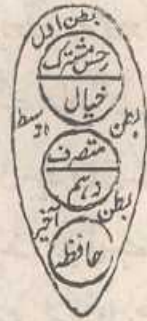 بطن اول
حس مشترک
خیال
بطن اوسط
متصرف
وہم
بطن آخیر
حافظہ